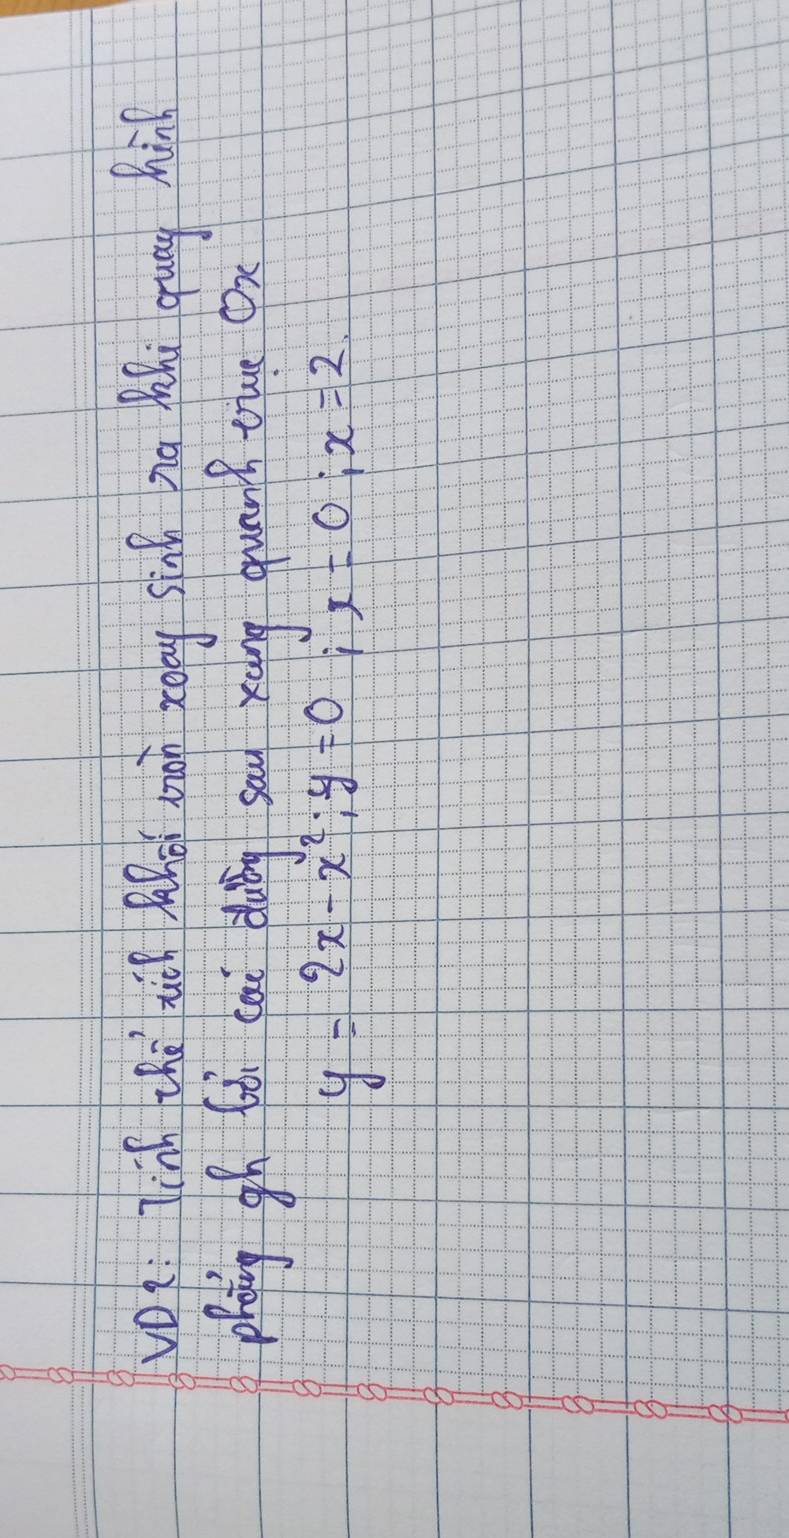 VD2: Tính thể tích khối tròn xoay sinh ra khi quay hình
phẳng gh bởi các đường sau xung quanh trục Ox
y = 2x - x²; y = 0; x = 0; x = 2.